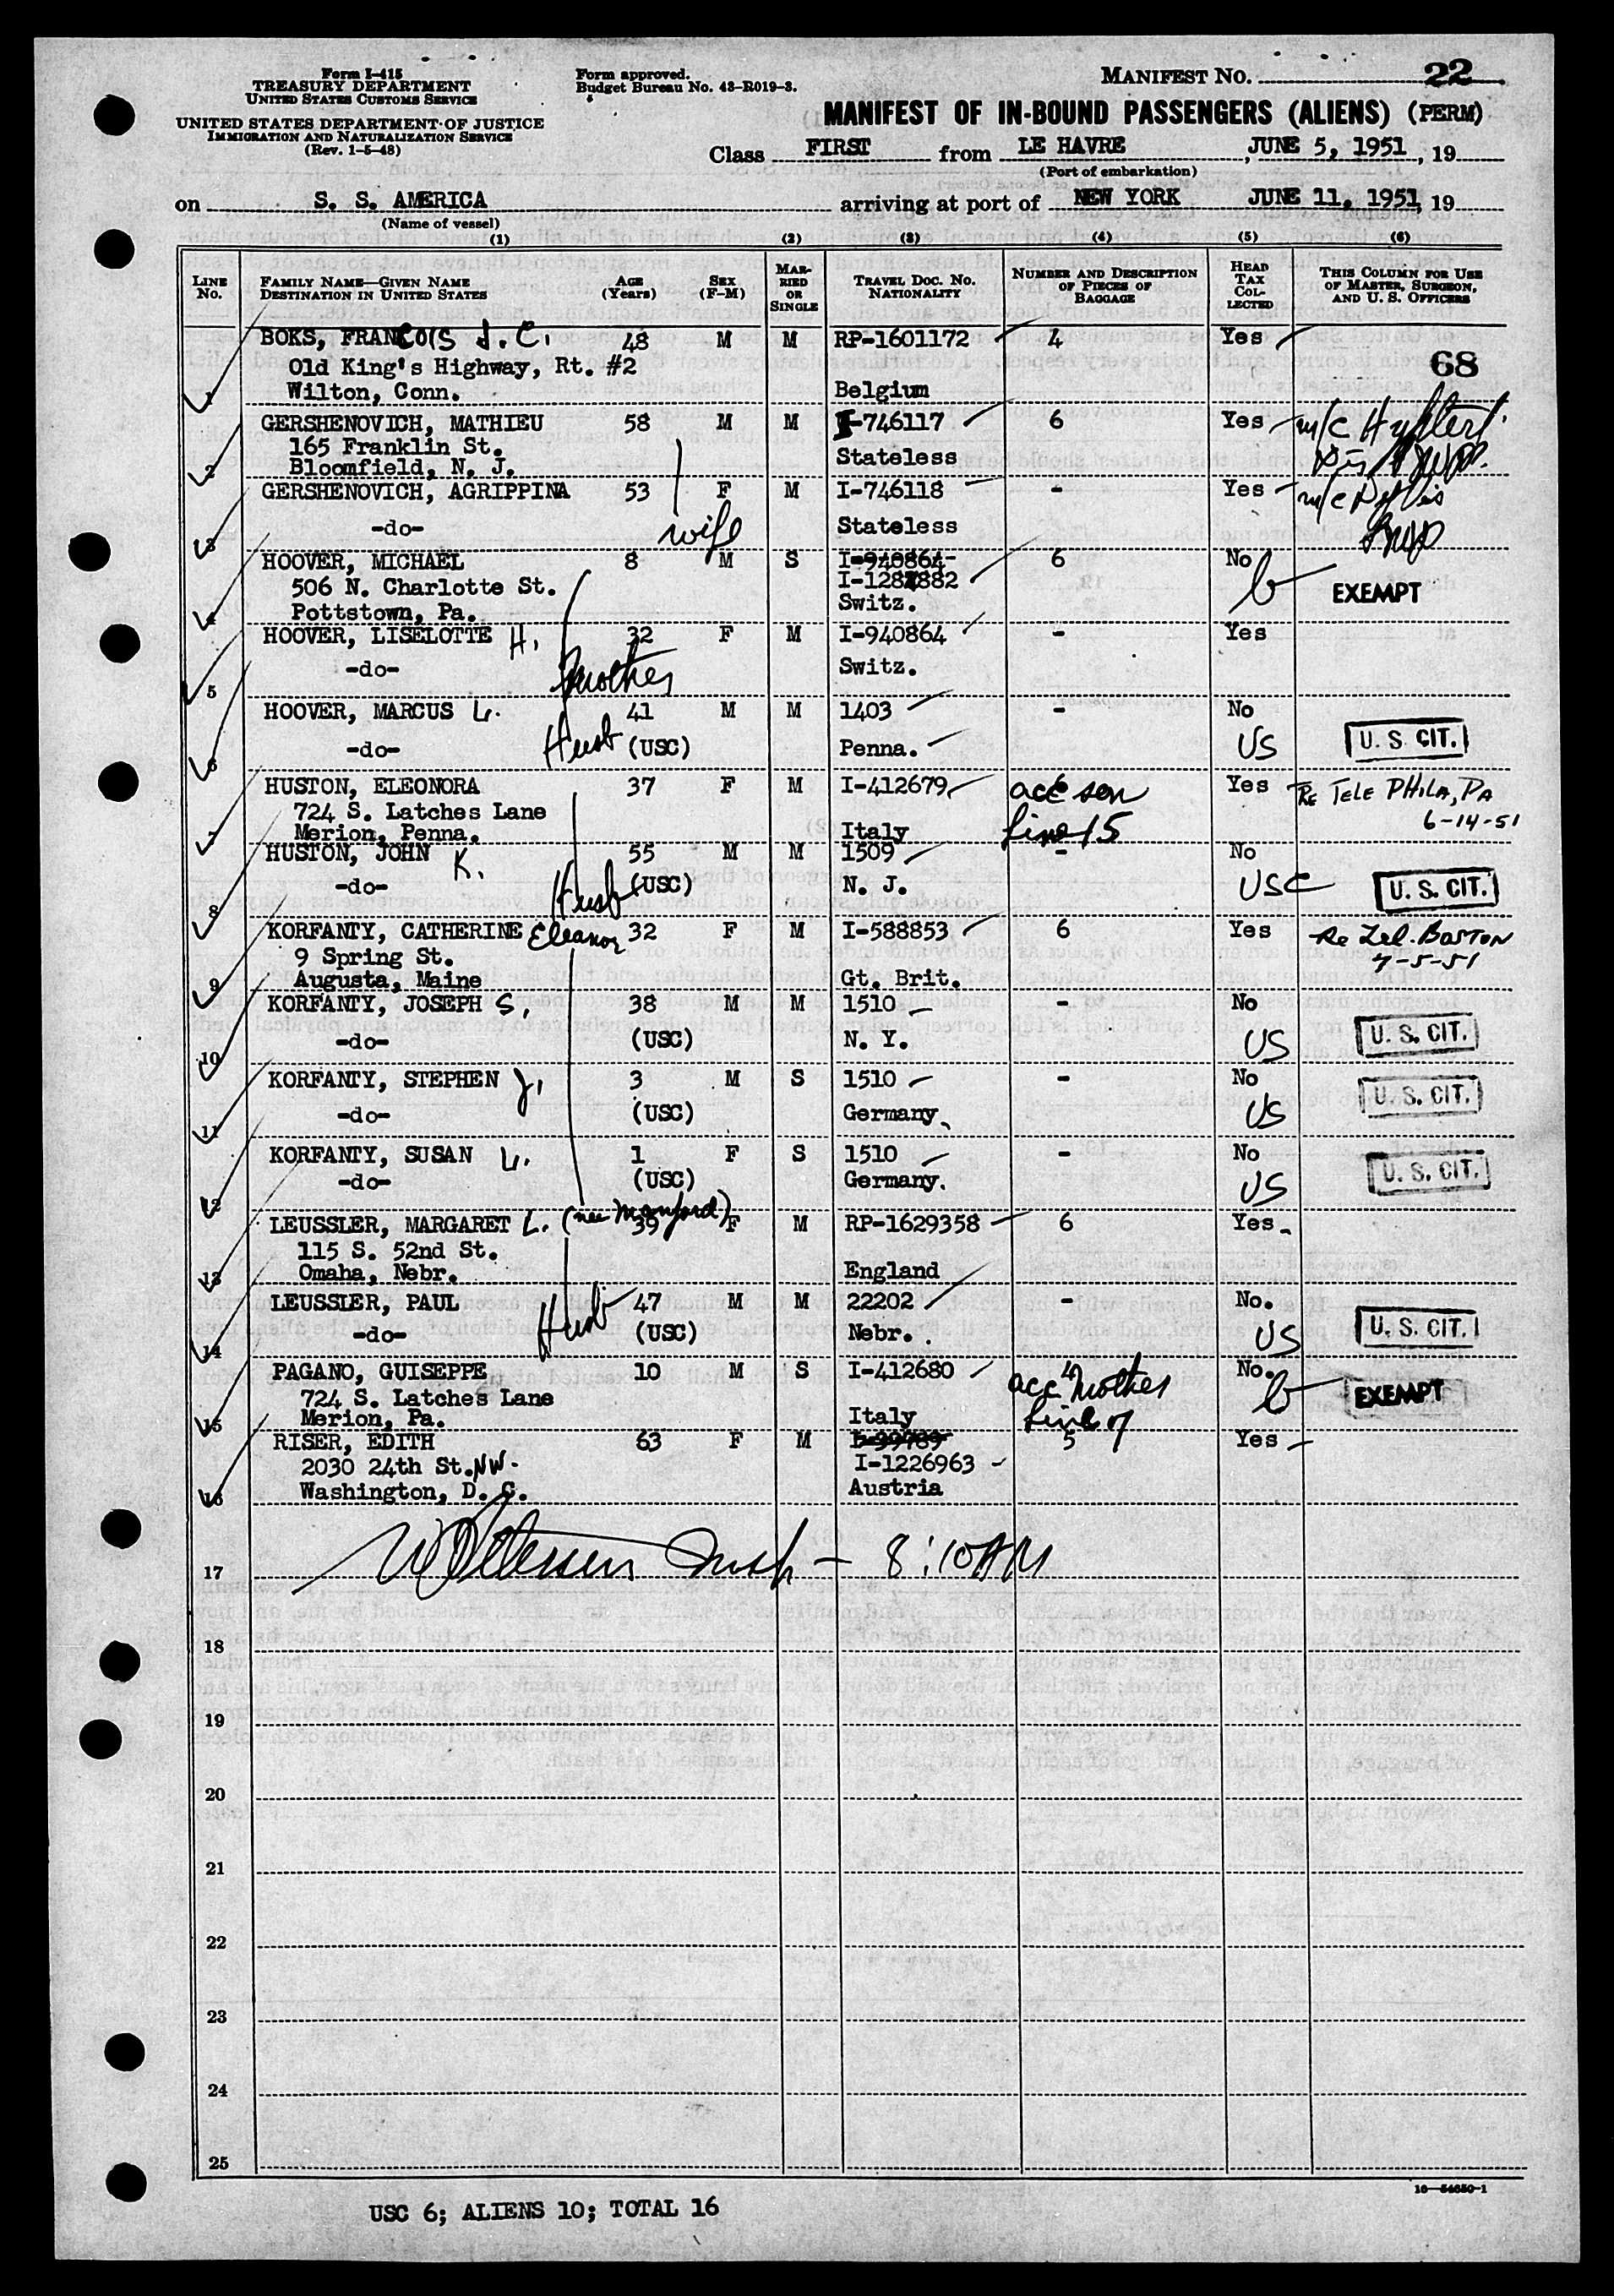 Form I-415
TREASURY DEPARTMENT
UNITED STATES CUSTOMS SERVICE
UNITED STATES DEPARTMENT OF JUSTICE
IMMIGRATION AND NATURALIZATION SERVICE
(Rev. 1-5-48)
Form approved.
Budget Bureau No. 43-R019-3.
MANIFEST NO. 22
MANIFEST OF IN-BOUND PASSENGERS (ALIENS) (PERM)
Class FIRST from LE HAVRE, JUNE 5, 1951, 19
(Port of embarkation)
on S. S. AMERICA arriving at port of NEW YORK JUNE 11, 1951, 19
(Name of vessel)
(1) (2) (3) (4) (5) (6)
LINE No. FAMILY NAME—GIVEN NAME DESTINATION IN UNITED STATES AGE (Years) SEX (F-M) MARRIED OR SINGLE TRAVEL DOC. NO. NATIONALITY NUMBER AND DESCRIPTION OF PIECES OF BAGGAGE HEAD TAX COLLECTED THIS COLUMN FOR USE OF MASTER, SURGEON, AND U. S. OFFICERS
BOKS, FRANCOIS J. C. 48 M M RP-1601172 4 Yes
Old King's Highway, Rt. #2 68
1 Wilton, Conn. Belgium
GERSHENOVICH, MATHIEU 58 M M I-746117 6 Yes m/c
165 Franklin St.
Stateless
2 Bloomfield, N. J.
GERSHENOVICH, AGRIPPINA 53 F M I-746118 - Yes m/c
3 -do- wife Stateless
HOOVER, MICHAEL 8 M S I-940864- 6 No
506 N. Charlotte St. I-1282882 EXEMPT
4 Pottstown, Pa. Switz.
HOOVER, LISELOTTE H. 32 F M I-940864 - Yes
5 -do- Mother Switz.
HOOVER, MARCUS L. 41 M M 1403 - No
6 -do- Husb (USC) Penna. US U. S. CIT.
HUSTON, ELEONORA 37 F M I-412679 6 acc son Yes Re TELE PHILA, PA
724 S. Latches Lane 6-14-51
7 Merion, Penna. Italy Line 15
HUSTON, JOHN K. 55 M M 1509 - No
8 -do- Husb (USC) N. J. USC U. S. CIT.
KORFANTY, CATHERINE Eleanor 32 F M I-588853 6 Yes Re Tel. BOSTON
9 Spring St. 7-5-51
9 Augusta, Maine Gt. Brit.
KORFANTY, JOSEPH S. 38 M M 1510 - No
10 -do- (USC) N. Y. US U. S. CIT.
KORFANTY, STEPHEN J. 3 M S 1510 - No
11 -do- (USC) Germany. US U. S. CIT.
KORFANTY, SUSAN L. 1 F S 1510 - No
12 -do- (USC) Germany. US U. S. CIT.
LEUSSLER, MARGARET L. (nee Monford) 39 F M RP-1629358 6 Yes
115 S. 52nd St.
13 Omaha, Nebr. England
LEUSSLER, PAUL 47 M M 22202 - No.
14 -do- Husb (USC) Nebr. US U. S. CIT.
PAGANO, GUISEPPE 10 M S I-412680 4 No.
724 S. Latches Lane acc Mother EXEMPT
15 Merion, Pa. Italy Line 7
RISER, EDITH 63 F M I-99789 5 Yes
2030 24th St. NW. I-1226963
16 Washington, D. C. Austria
17 Insp - 8:10 AM
18
19
20
21
22
23
24
25
16—54650-1
USC 6; ALIENS 10; TOTAL 16